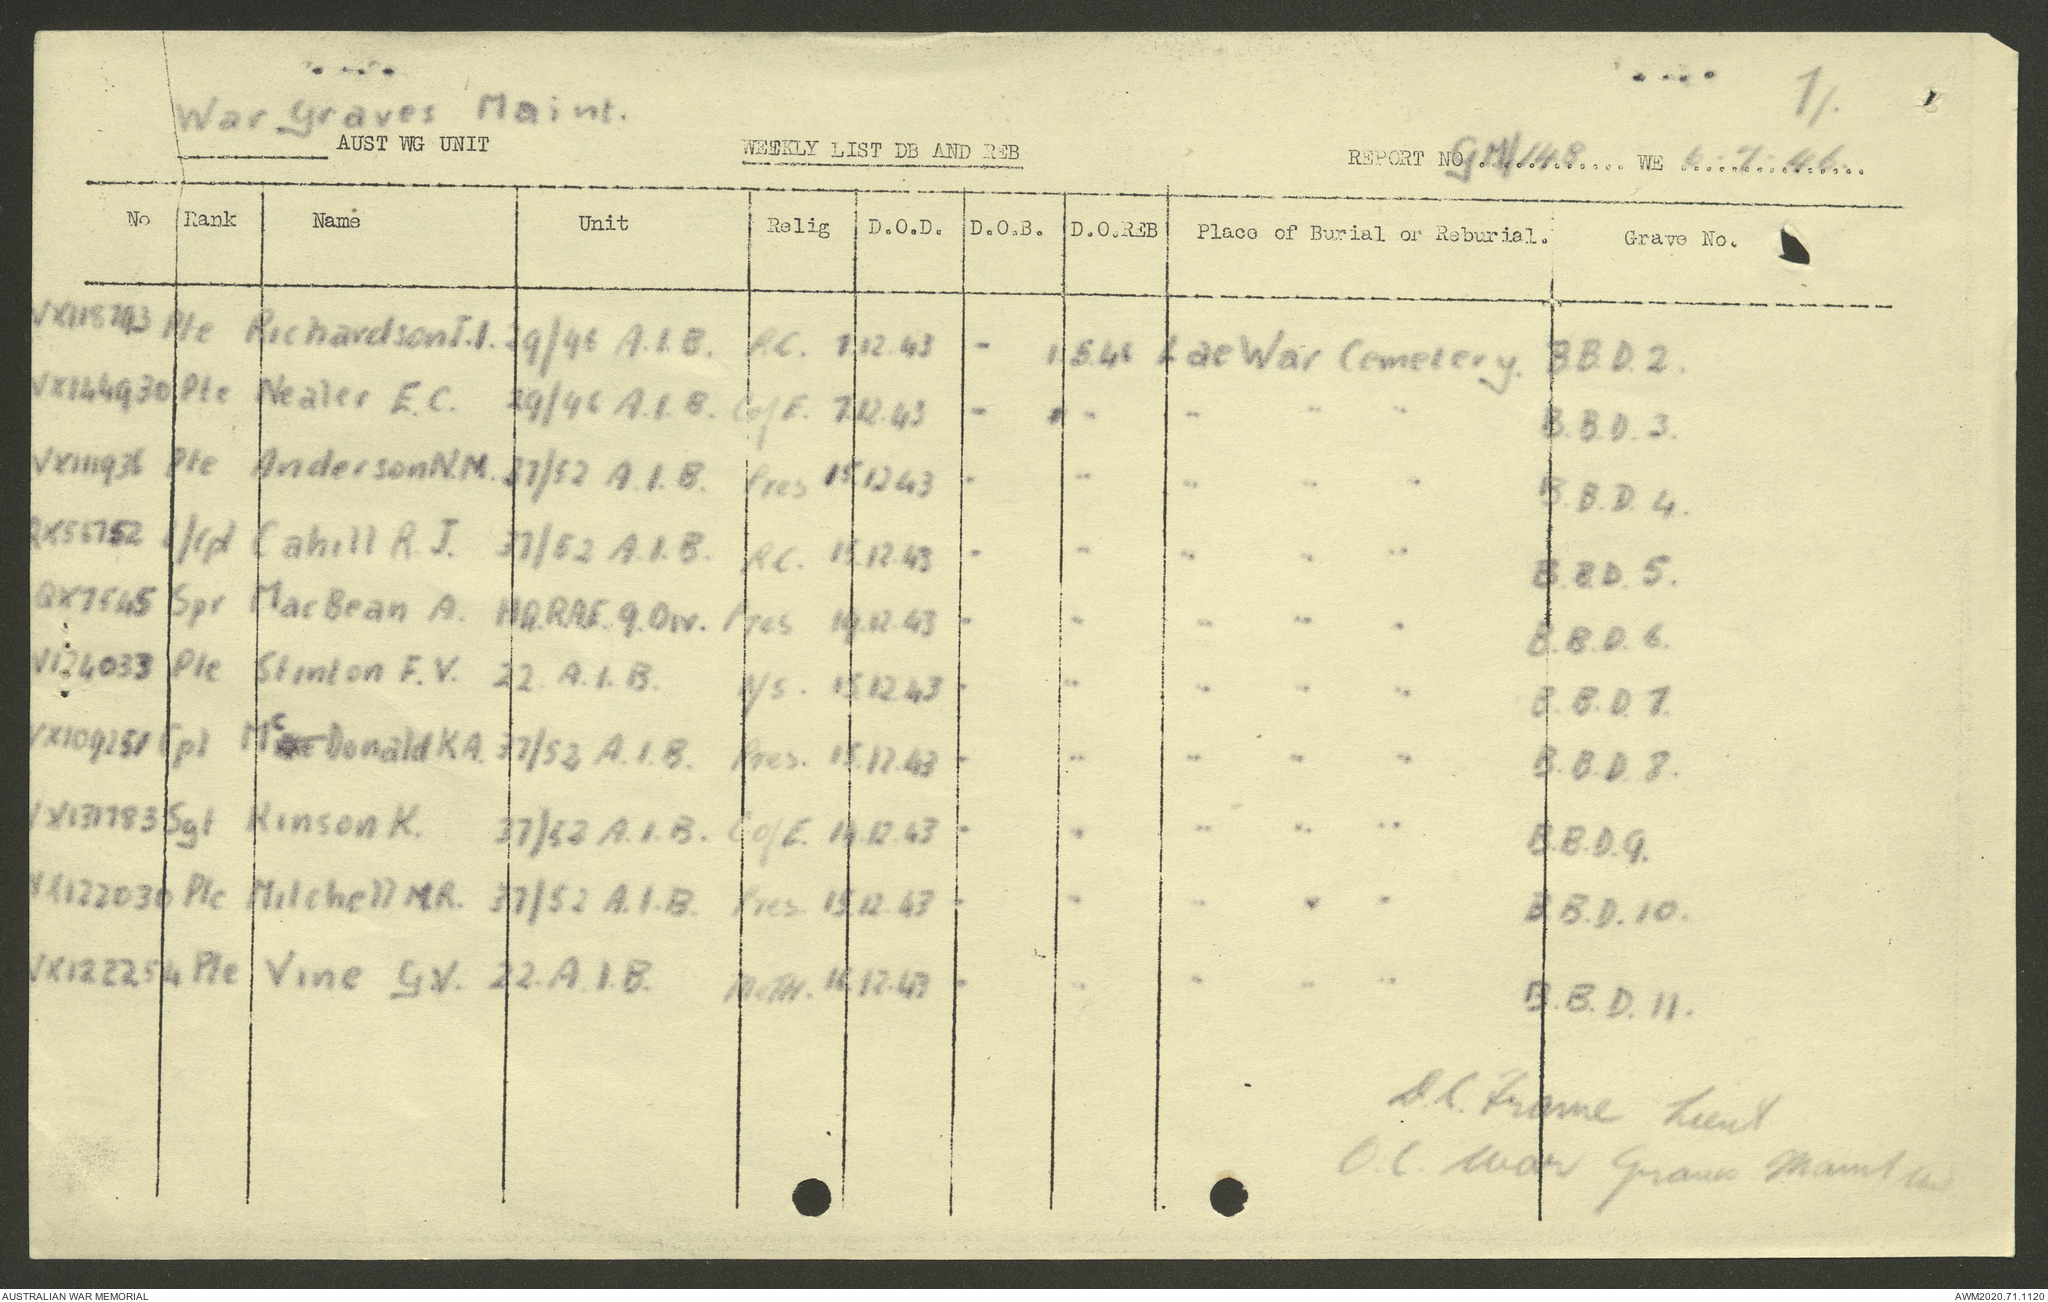 1/.
War Graves Maint.
AUST WG UNIT WEEKLY LIST DB AND REB REPORT NO GM/148 WE 6.7.46
No Rank Name Unit Relig D.O.D. D.O.B. D.O.REB Place of Burial or Reburial. Grave No.
VX118743 Pte Richardson J.I. 29/46 A.I.B. R.C. 7.12.43 - 1.5.46 Lae War Cemetery. B.B.D.2.
VX144930 Pte Nealer E.C. 29/46 A.I.B. CofE. 7.12.43 - " " " " B.B.D.3.
VX111936 Pte Anderson N.M. 37/52 A.I.B. Pres 15.12.43 - " " " " B.B.D.4.
QX56752 L/Cpl Cahill R.J. 37/52 A.I.B. R.C. 15.12.43 - " " " " B.B.D.5.
QX7545 Spr MacBean A. HQ.RAE.9.Div. Pres 19.12.43 - " " " " B.B.D.6.
V174033 Pte Stinton F.V. 22.A.I.B. N/S. 15.12.43 - " " " " B.B.D.7.
VX109251 Cpl McDonald K.A. 37/52 A.I.B. Pres. 15.12.43 - " " " " B.B.D.8.
VX131783 Sgt Kinson K. 37/52 A.I.B. CofE. 14.12.43 - " " " " B.B.D.9.
VX122030 Pte Mitchell M.R. 37/52 A.I.B. Pres 15.12.43 - " " " " B.B.D.10.
VX122254 Pte Vine G.V. 22.A.I.B. Meth. 16.12.43 - " " " " B.B.D.11.
D.C. Frame Lieut
O.C. War Graves Maint Un
AUSTRALIAN WAR MEMORIAL AWM2020.71.1120